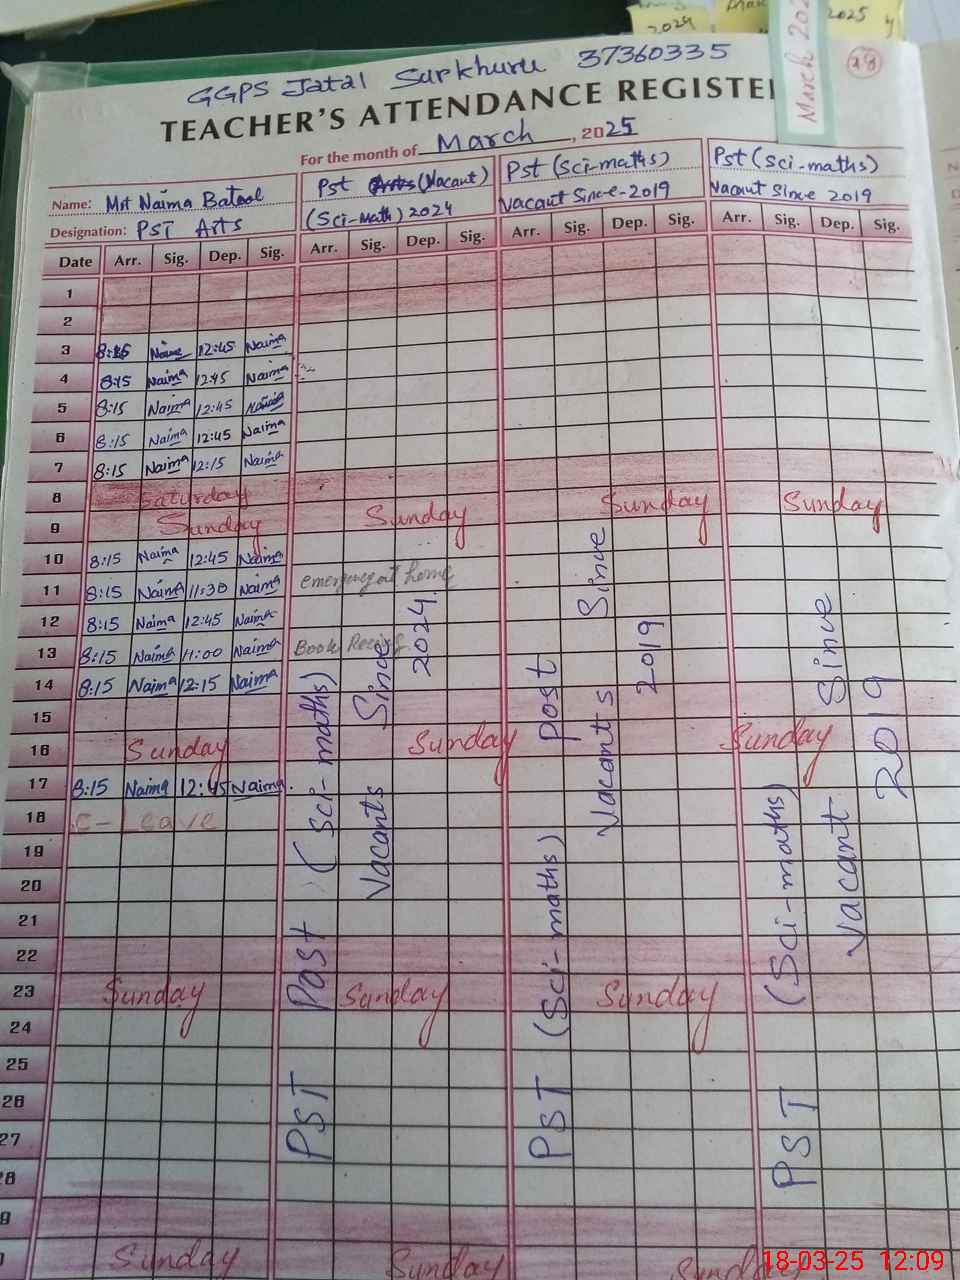 2024
2025
March 202
18
GGPS Jatal Surkhuru 37360335
TEACHER'S ATTENDANCE REGISTE
For the month of March, 2025
Name: Naima Batool
Designation: PST Arts
Pst (Vacant)
(Sci-Math) 2024
Pst (Sci-maths)
Vacant Since-2019
Pst (Sci-maths)
Vacant Since 2019
Date Arr. Sig. Dep. Sig. Arr. Sig. Dep. Sig. Arr. Sig. Dep. Sig. Arr. Sig. Dep. Sig.
1
2
3 8:15 Naima 12:45 Naima
4 8:15 Naima 12:45 Naima
5 8:15 Naima 12:45 Naima
6 8:15 Naima 12:45 Naima
7 8:15 Naima 12:15 Naima
8 Saturday
9 Sunday Sunday Sunday Sunday
10 8:15 Naima 12:45 Naima
11 8:15 Naima 11:30 Naima emergency at home
12 8:15 Naima 12:45 Naima
13 8:15 Naima 11:00 Naima Book
14 8:15 Naima 12:15 Naima
15
16 Sunday Sunday Sunday
17 8:15 Naima 12:45 Naima
18 C-Leave
19
20
21
22
23 Sunday Sunday Sunday
24
25
26
27
28
9
Sunday Sunday Sunday
PST Post (Sci-maths)
Vacants Since 2024
PST (Sci-maths) post
Vacants Since 2019
PST (Sci-maths)
Vacant Since 2019
18-03-25 12:09